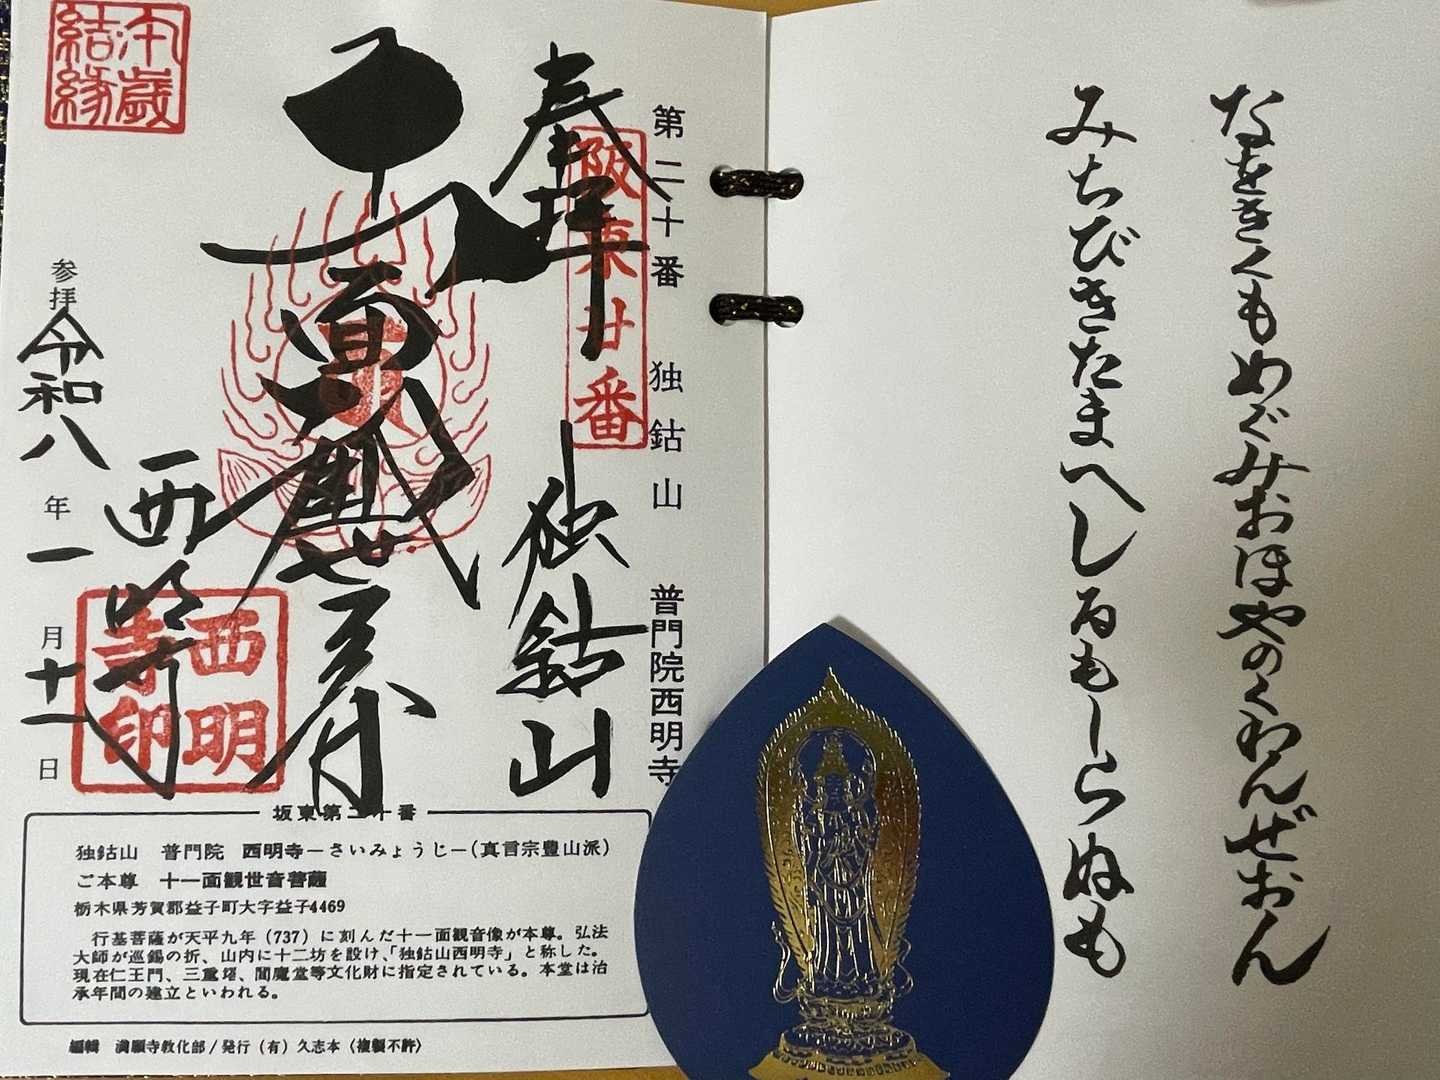 なをきくもめぐみおほやのくわんぜおん
みちびきたまへしるもしらぬも
第二十番　独鈷山　普門院西明寺
奉拝
阪東廿番
独鈷山
十一面観世音
西明寺
西明寺印
午歳結縁
参拝令和八年一月十一日
坂東第二十番
独鈷山　普門院　西明寺－さいみょうじ－（真言宗豊山派）
ご本尊　十一面観世音菩薩
栃木県芳賀郡益子町大字益子4469
行基菩薩が天平九年（737）に刻んだ十一面観音像が本尊。弘法
大師が巡錫の折、山内に十二坊を設け、「独鈷山西明寺」と称した。
現在仁王門、三重塔、閻魔堂等文化財に指定されている。本堂は治
承年間の建立といわれる。
編輯　満願寺教化部／発行（有）久志本〈複製不許〉